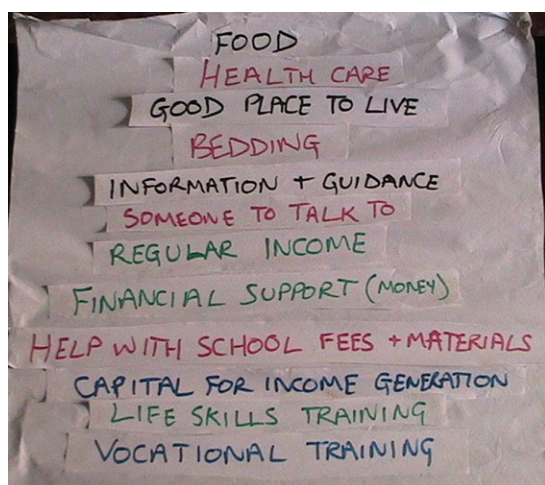 FOOD
HEALTH CARE
GOOD PLACE TO LIVE
BEDDING
INFORMATION + GUIDANCE
SOMEONE TO TALK TO
REGULAR INCOME
FINANCIAL SUPPORT (MONEY)
HELP WITH SCHOOL FEES + MATERIALS
CAPITAL FOR INCOME GENERATION
LIFE SKILLS TRAINING
VOCATIONAL TRAINING